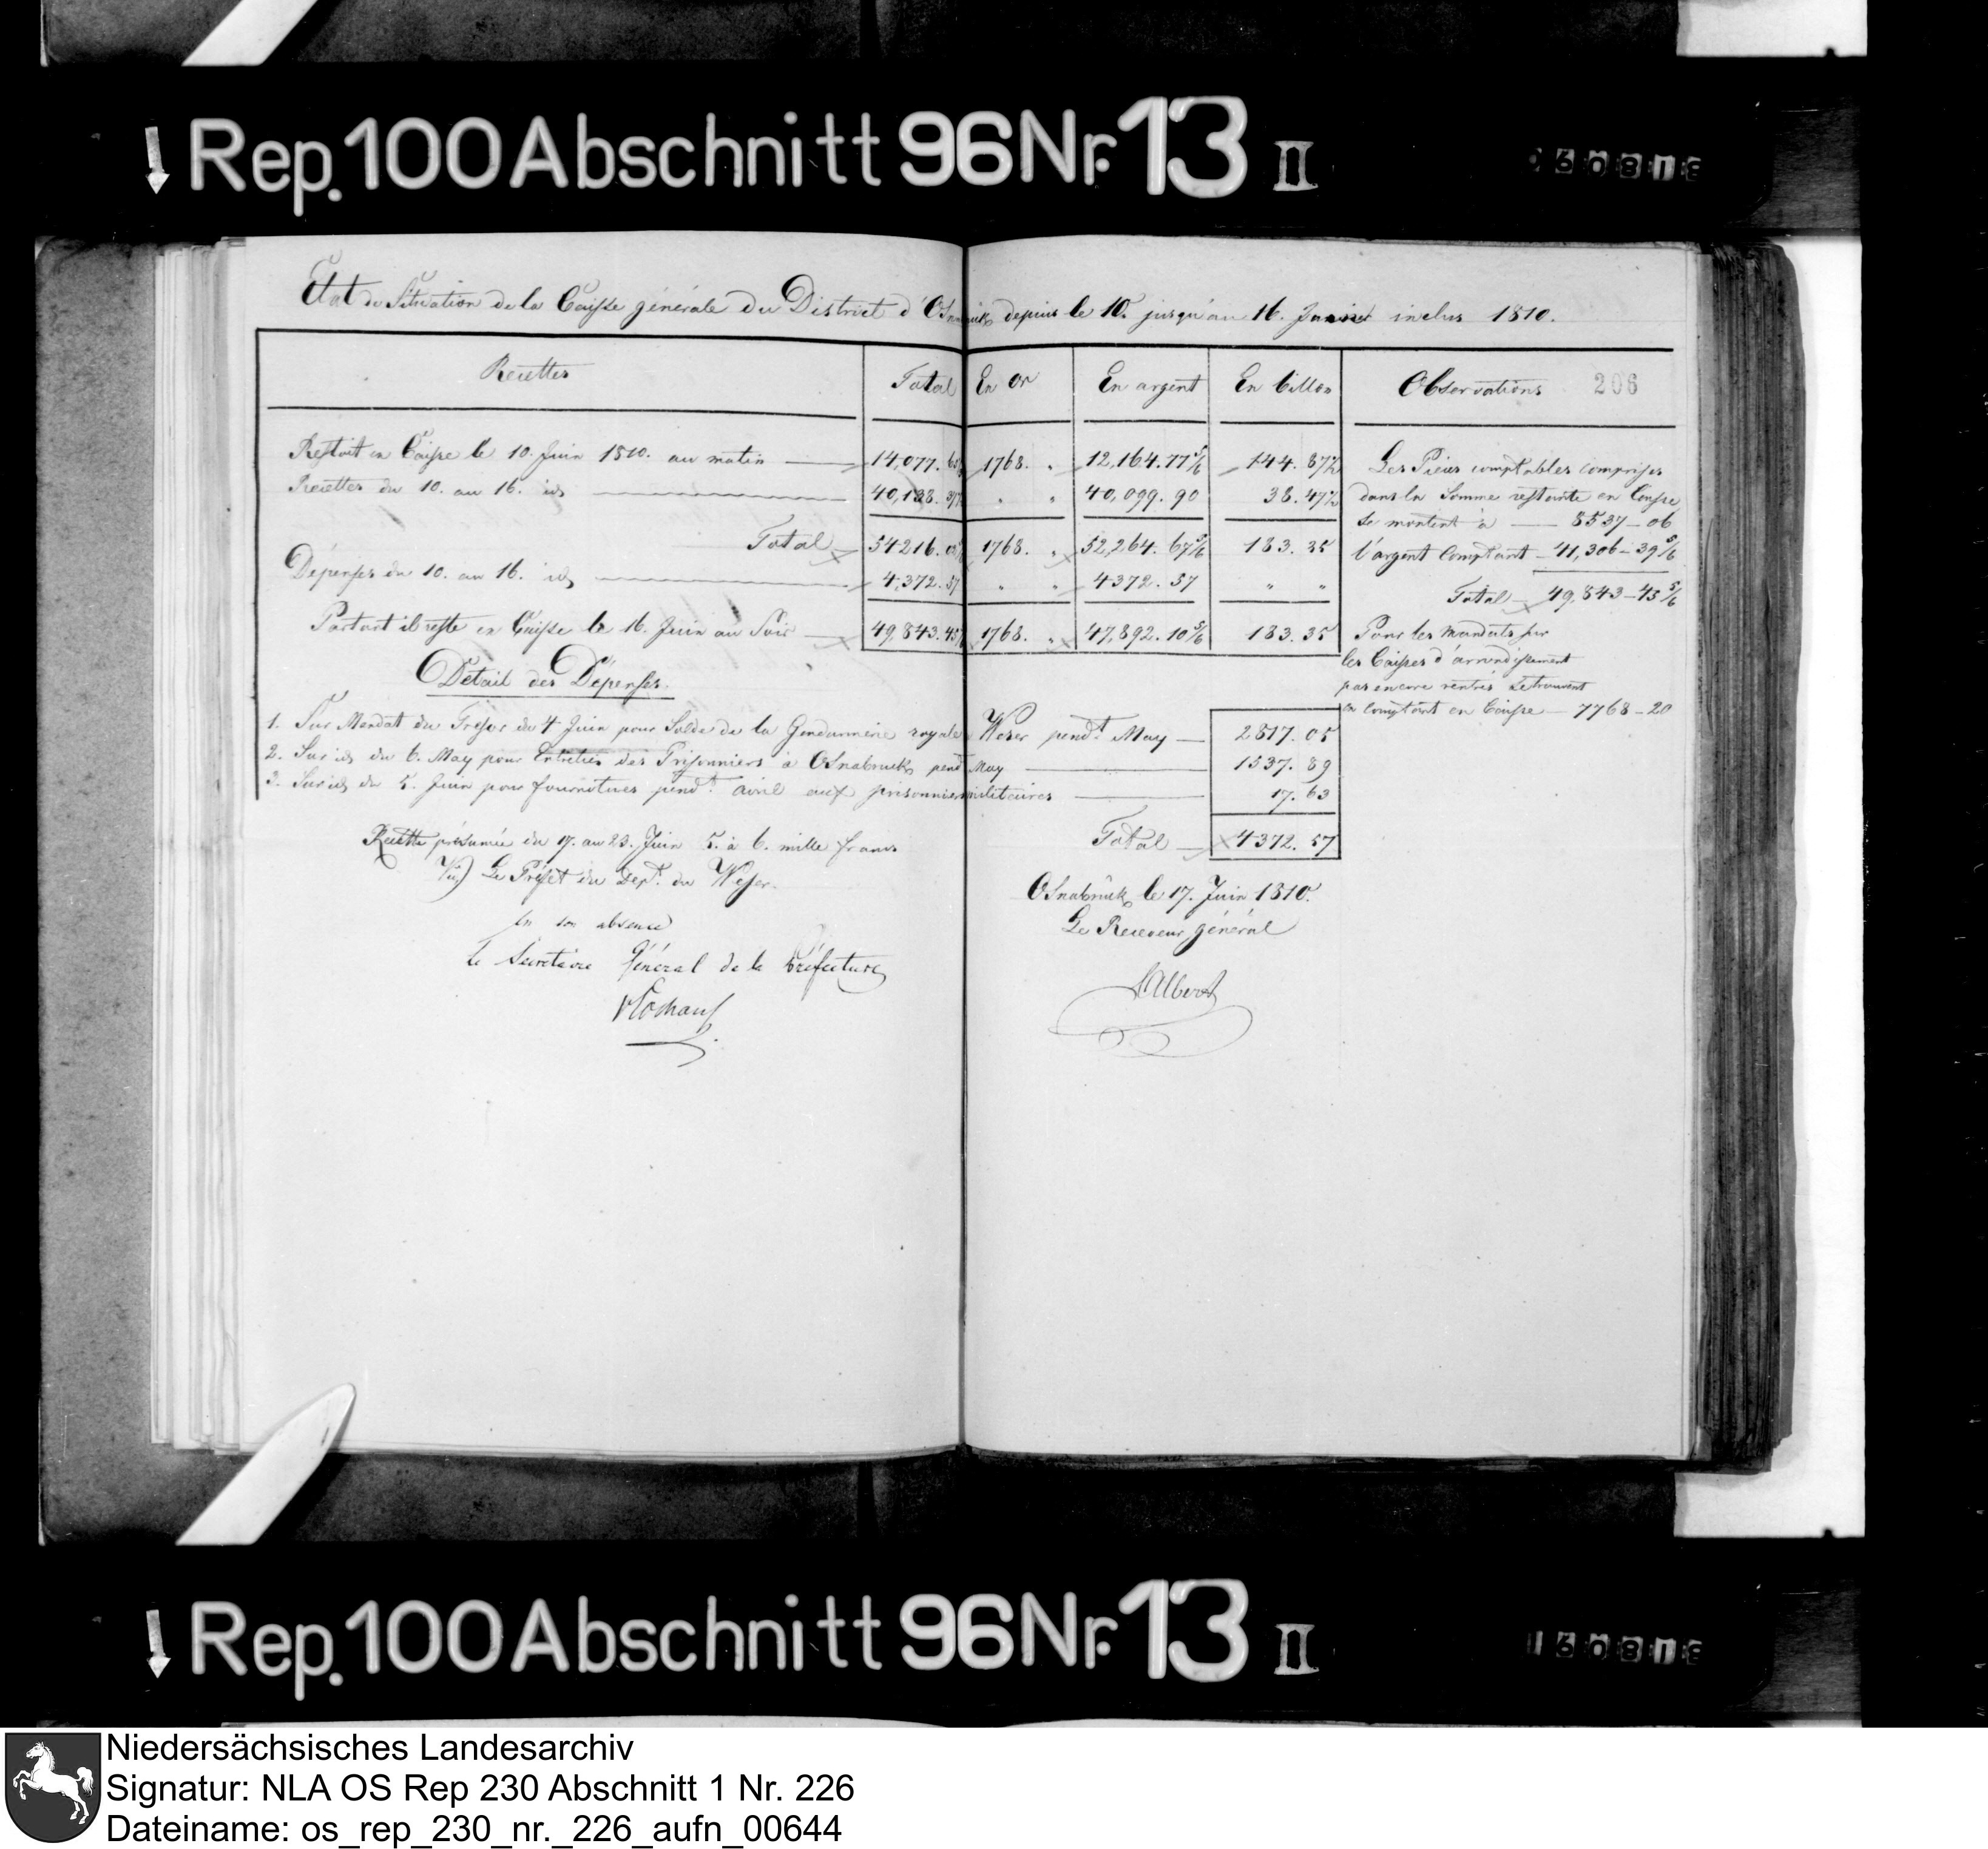 Rep. 100 Abschnitt 96 Nr. 13 II
Etat de Situation de la Caisse générale du District d'Osnabruck depuis le 10. jusqu'au 16. Juin inclus 1810.
Recettes Total En or En argent En billon Observations 206
Restoit en Caisse le 10. Juin 1810. au matin 14,077. 1768. " 12,164. 77 5/6 144. 87 1/2
Recettes du 10. au 16. id. 40,138. 37 " " 40,099. 90 38. 47 1/2
Total 54216. 1768. " 52,264. 67 5/6 183. 35
Dépenses du 10. au 16. id. 4,372. 57 " " 4372. 57 " "
Partant il reste en Caisse le 16. Juin au Soir 49,843. 45 1768. " 47,892. 10 5/6 183. 35
Les Pièces comptables comprises
dans la Somme restante en Caisse
se montent à 8537-06
l'argent Comptant 41,306-39 5/6
Total 49,843-45 5/6
Pour les Mandats sur
les Caisses d'arrondissement
pas encore rentrés se trouvent
en comptant en Caisse 7768-20
Détail des Dépenses.
1. Sur Mandat du Trésor du 4 Juin pour Solde de la Gendarmerie royale Weser pendt. May 2817. 05
2. Sur id. du 6. May pour Entretien des Prisonniers à Osnabruck pend. May 1537. 89
3. Sur id. du 5. Juin pour fournitures pendt. avril aux prisonniers militaires 17. 63
Total 4372. 57
Recette présumée du 17. au 23. Juin 5. à 6. mille francs
Vu) Le Préfet du Dept. du Weser.
en son absence
Le Secrétaire Général de la Préfecture
Osnabrück le 17. Juin 1810.
Le Receveur général
Albert
Rep. 100 Abschnitt 96 Nr. 13 II
Niedersächsisches Landesarchiv
Signatur: NLA OS Rep 230 Abschnitt 1 Nr. 226
Dateiname: os_rep_230_nr._226_aufn_00644